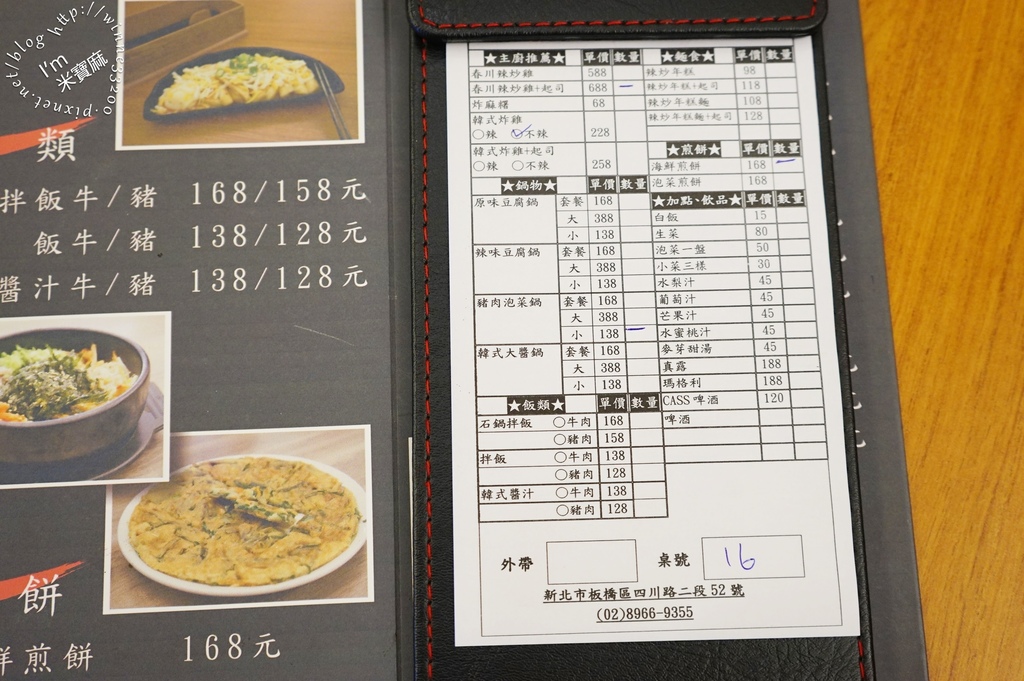 http://winnie33200.pixnet.net/blog
I'm
米寶麻
類
拌飯牛/豬 168/158元
飯牛/豬 138/128元
醬汁牛/豬 138/128元
餅
鮮煎餅 168元
★主廚推薦★ 單價 數量
春川辣炒雞 588
春川辣炒雞+起司 688 一
炸麻糬 68
韓式炸雞
○辣 ○✓不辣 228
韓式炸雞+起司
○辣 ○不辣 258
★鍋物★ 單價 數量
原味豆腐鍋 套餐 168
大 388
小 138
辣味豆腐鍋 套餐 168
大 388
小 138
豬肉泡菜鍋 套餐 168
大 388
小 138 一
韓式大醬鍋 套餐 168
大 388
小 138
★飯類★ 單價 數量
石鍋拌飯 ○牛肉 168
○豬肉 158
拌飯 ○牛肉 138
○豬肉 128
韓式醬汁 ○牛肉 138
○豬肉 128
★麵食★ 單價 數量
辣炒年糕 98
辣炒年糕+起司 118
辣炒年糕麵 108
辣炒年糕麵+起司 128
★煎餅★ 單價 數量
海鮮煎餅 168 一
泡菜煎餅 168
★加點、飲品★ 單價 數量
白飯 15
生菜 80
泡菜一盤 50
小菜三樣 30
水梨汁 45
葡萄汁 45
芒果汁 45
水蜜桃汁 45
麥芽甜湯 45
真露 188
瑪格利 188
CASS 啤酒 120
啤酒
外帶 桌號 16
新北市板橋區四川路二段 52 號
(02)8966-9355